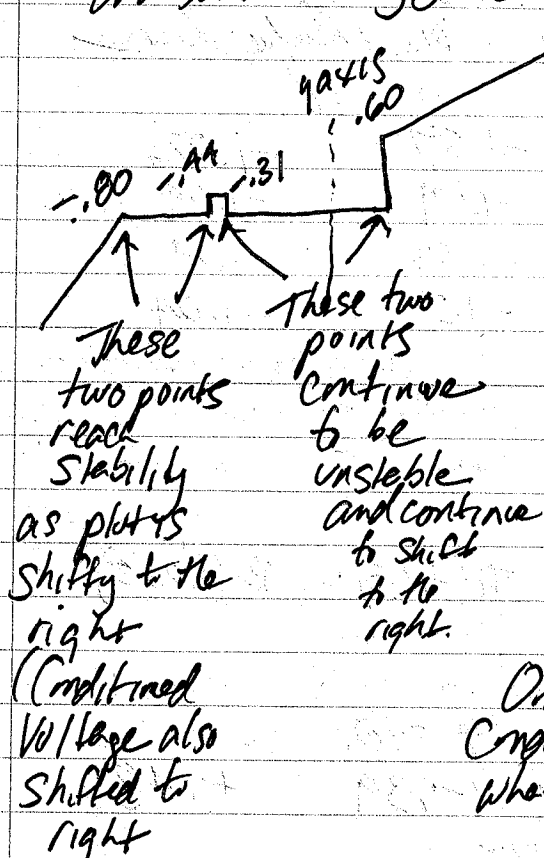 y axis
.60
-.80
-.44
-.31
These
two points
reach
stability
as plot is
shifty to the
right
(Conditioned
Voltage also
shifted to
right
These two
points
continue
to be
unstable
and continue
to shift
to the
right.